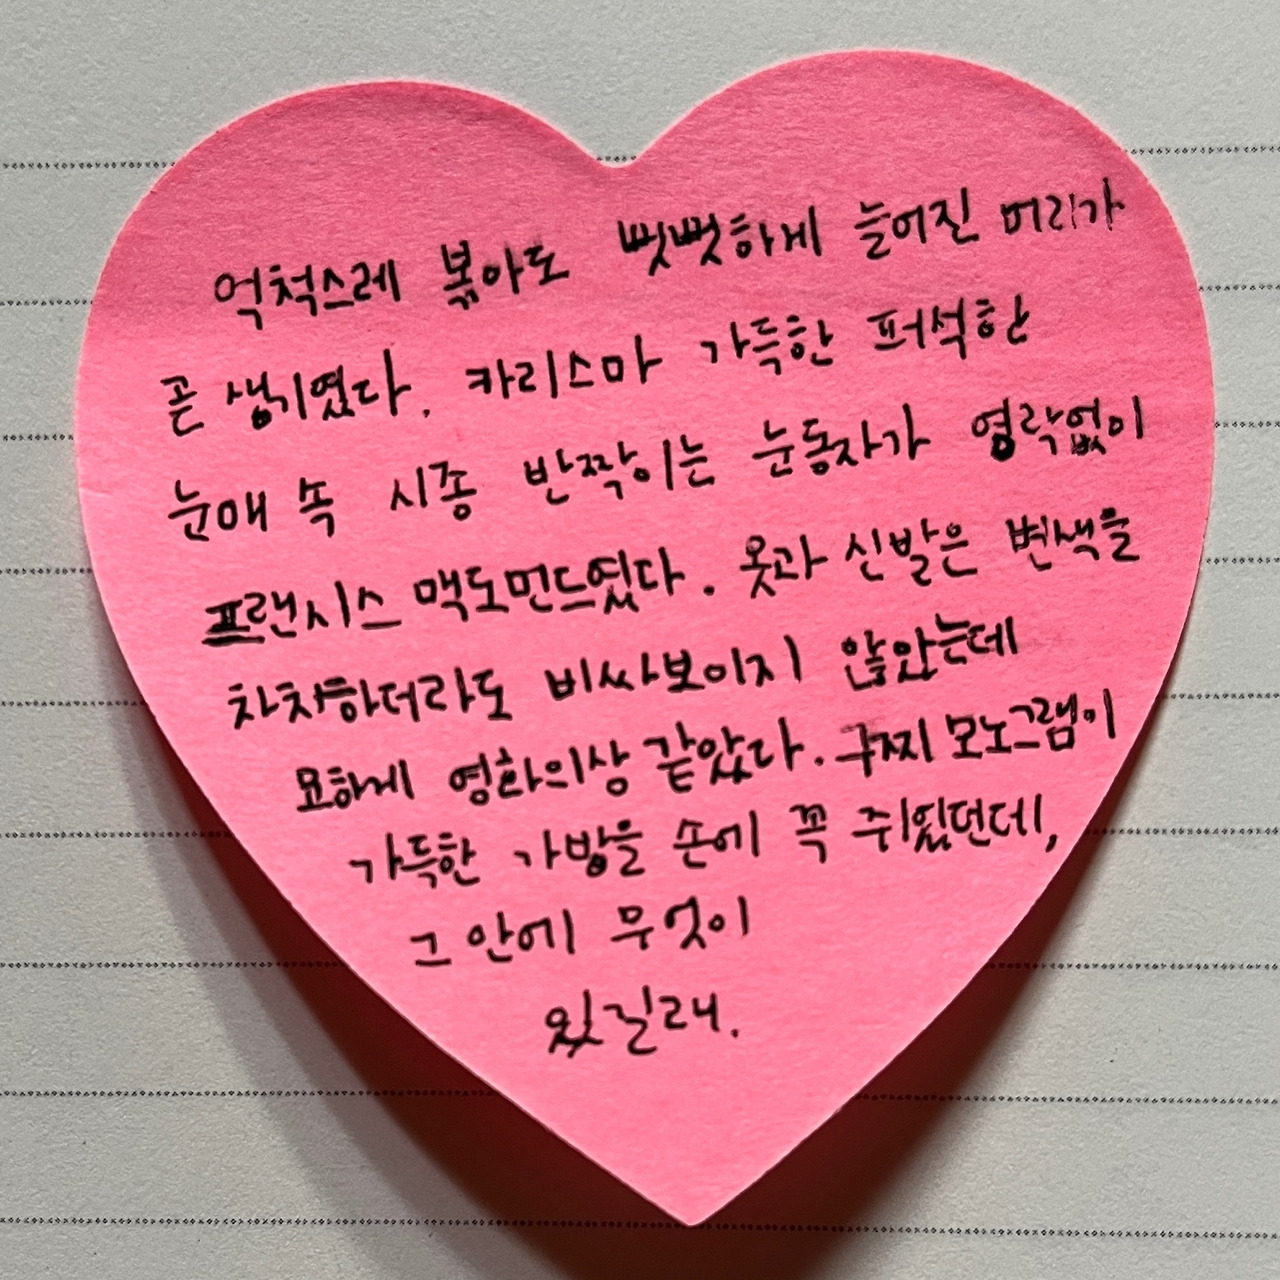 억척스레 볶아도 뻣뻣하게 늘어진 머리가
곧 생기였다. 카리스마 가득한 퍼석한
눈매 속 시종 반짝이는 눈동자가 영락없이
프랜시스 맥도먼드였다. 옷과 신발은 변색을
차치하더라도 비싸보이지 않았는데
묘하게 영화의상 같았다. 구찌 모노그램이
가득한 가방을 손에 꼭 쥐었던데,
그 안에 무엇이
있길래.